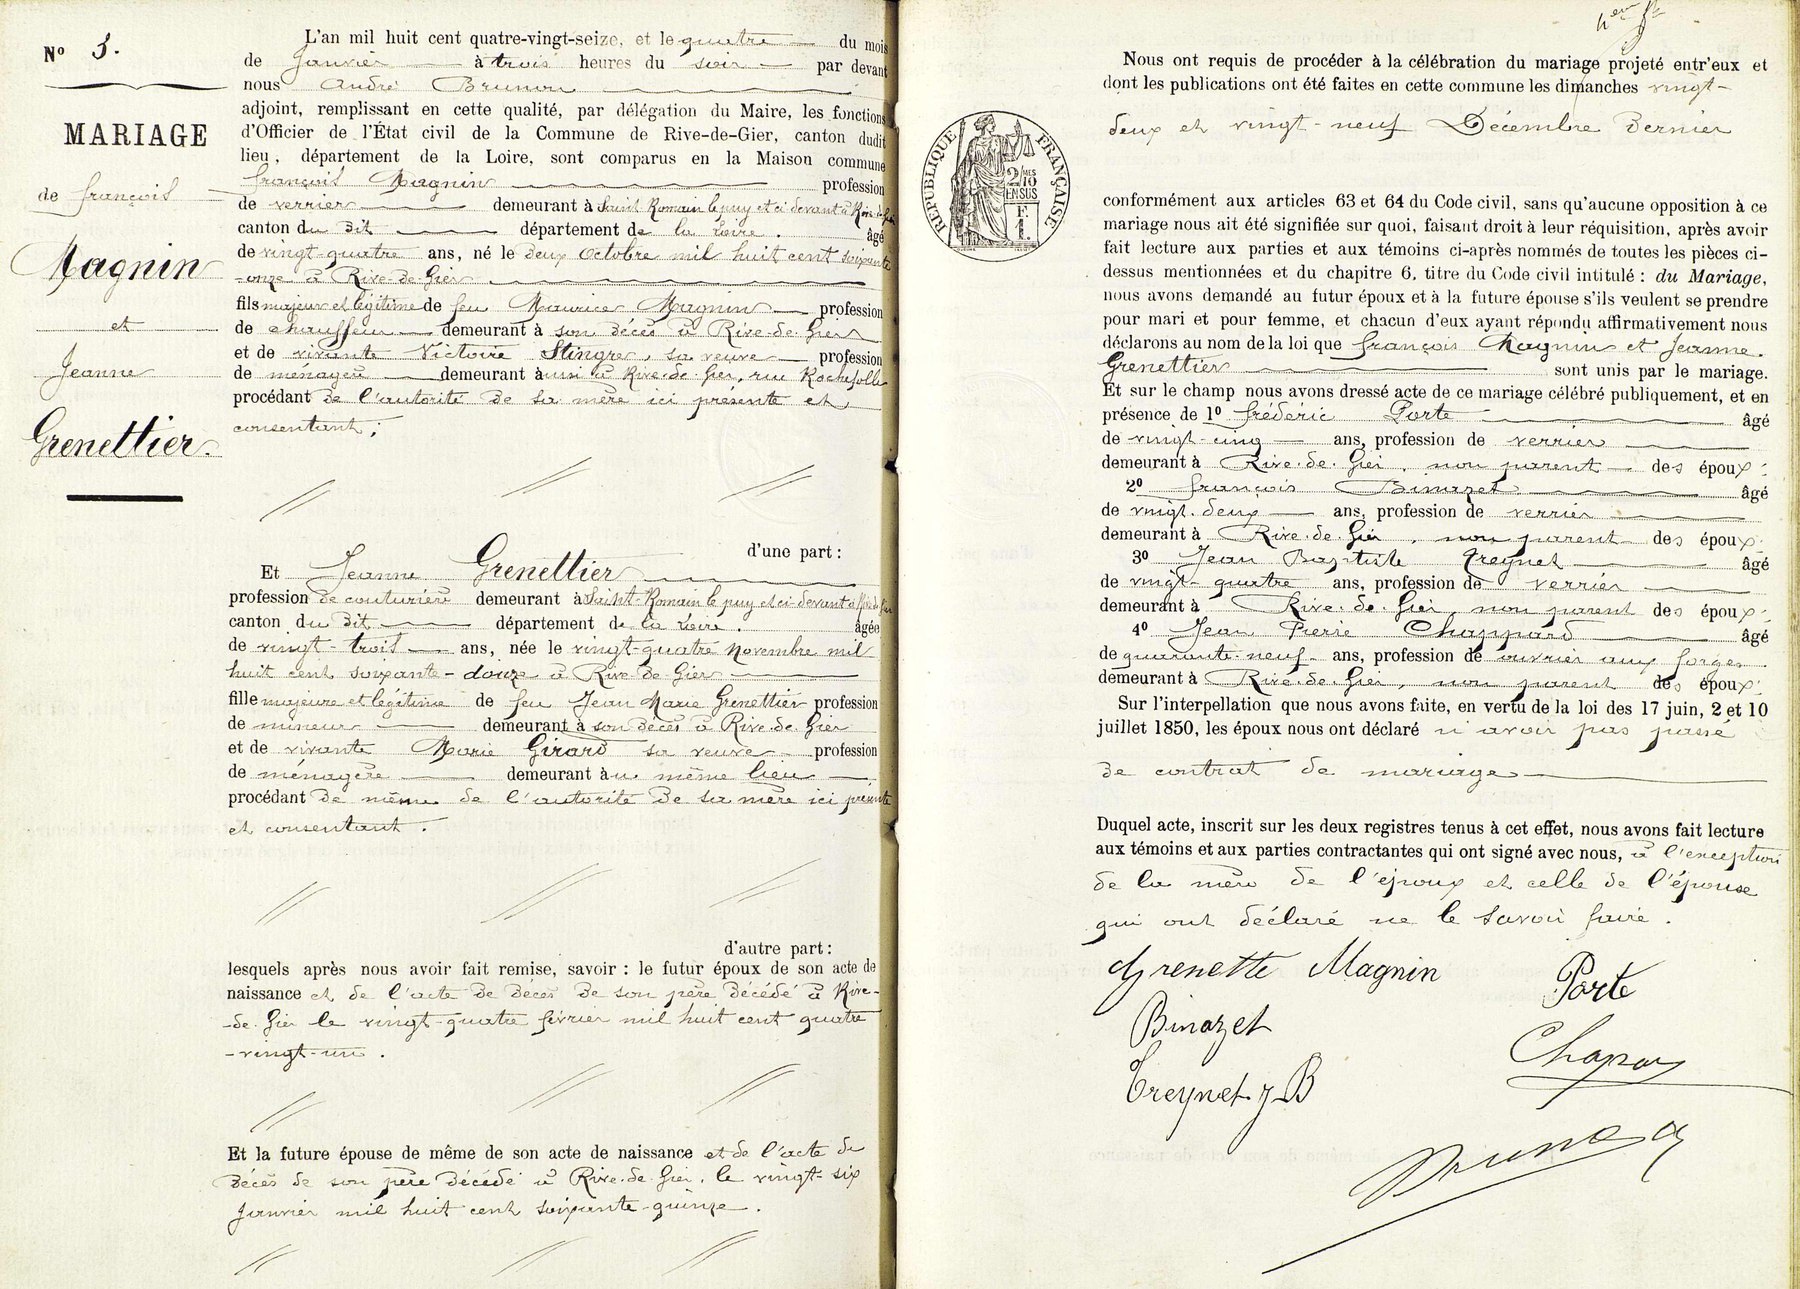 N° 3.
MARIAGE
de françois
Magnin
et
Jeanne
Grenettier.
L'an mil huit cent quatre-vingt-seize, et le quatre du mois
de Janvier à trois heures du soir par devant
nous André Brunon
adjoint, remplissant en cette qualité, par délégation du Maire, les fonctions
d'Officier de l'État civil de la Commune de Rive-de-Gier, canton dudit
lieu, département de la Loire, sont comparus en la Maison commune
françois Magnin profession
de verrier demeurant à Saint Romain le puy et ci devant à Rive de Gier
canton du dit département de la Loire. âgé
de vingt-quatre ans, né le deux Octobre mil huit cent soixante
-onze à Rive-de-Gier
fils majeur et légitime de feu Maurice Magnin profession
de chauffeur demeurant à son décès à Rive-de-Gier
et de vivante Victoire Stingre, sa veuve profession
de ménagère demeurant aussi à Rive-de-Gier, rue Rochefolle
procédant de l'autorité de sa mère ici présente et
consentant;
d'une part :
Et Jeanne Grenettier
profession de couturière demeurant à Saint-Romain le puy et ci devant à Rive de Gier
canton du dit département de la Loire. âgée
de vingt-trois ans, née le vingt-quatre novembre mil
huit cent soixante-douze à Rive-de-Gier
fille majeure et légitime de feu Jean Marie Grenettier profession
de mineur demeurant à son décès à Rive-de-Gier
et de vivante Marie Girard sa veuve profession
de ménagère demeurant au même lieu
procédant de même de l'autorité de sa mère ici présente
et consentant.
d'autre part :
lesquels après nous avoir fait remise, savoir : le futur époux de son acte de
naissance et de l'acte de décès de son père décédé à Rive-
-de-Gier le vingt-quatre février mil huit cent quatre
-vingt-un.
Et la future épouse de même de son acte de naissance et de l'acte de
décès de son père décédé à Rive-de-Gier, le vingt-six
janvier mil huit cent soixante-quinze.
Nous ont requis de procéder à la célébration du mariage projeté entr'eux et
dont les publications ont été faites en cette commune les dimanches vingt-
deux et vingt-neuf Décembre dernier
RÉPUBLIQUE FRANÇAISE
2/10 MES
EN SUS
F.
1.
conformément aux articles 63 et 64 du Code civil, sans qu'aucune opposition à ce
mariage nous ait été signifiée sur quoi, faisant droit à leur réquisition, après avoir
fait lecture aux parties et aux témoins ci-après nommés de toutes les pièces ci-
dessus mentionnées et du chapitre 6, titre du Code civil intitulé : du Mariage,
nous avons demandé au futur époux et à la future épouse s'ils veulent se prendre
pour mari et pour femme, et chacun d'eux ayant répondu affirmativement nous
déclarons au nom de la loi que françois Magnin et Jeanne.
Grenettier sont unis par le mariage.
Et sur le champ nous avons dressé acte de ce mariage célébré publiquement, et en
présence de 1° frédéric Porte âgé
de vingt-cinq ans, profession de verrier
demeurant à Rive-de-Gier, non parent des époux;
2° françois Binazet âgé
de vingt-deux ans, profession de verrier
demeurant à Rive-de-Gier, non parent des époux;
3° Jean Baptiste Treynet âgé
de vingt-quatre ans, profession de verrier
demeurant à Rive-de-Gier, non parent des époux;
4° Jean Pierre Chappard âgé
de quarante-neuf ans, profession de ouvrier aux forges
demeurant à Rive-de-Gier, non parent des époux;
Sur l'interpellation que nous avons faite, en vertu de la loi des 17 juin, 2 et 10
juillet 1850, les époux nous ont déclaré n'avoir pas passé
de contrat de mariage
Duquel acte, inscrit sur les deux registres tenus à cet effet, nous avons fait lecture
aux témoins et aux parties contractantes qui ont signé avec nous, à l'exception
de la mère de l'époux et celle de l'épouse
qui ont déclaré ne le savoir faire.
Grenette Magnin Porte
Binazet
Chapar
Treynet J B
Brunon